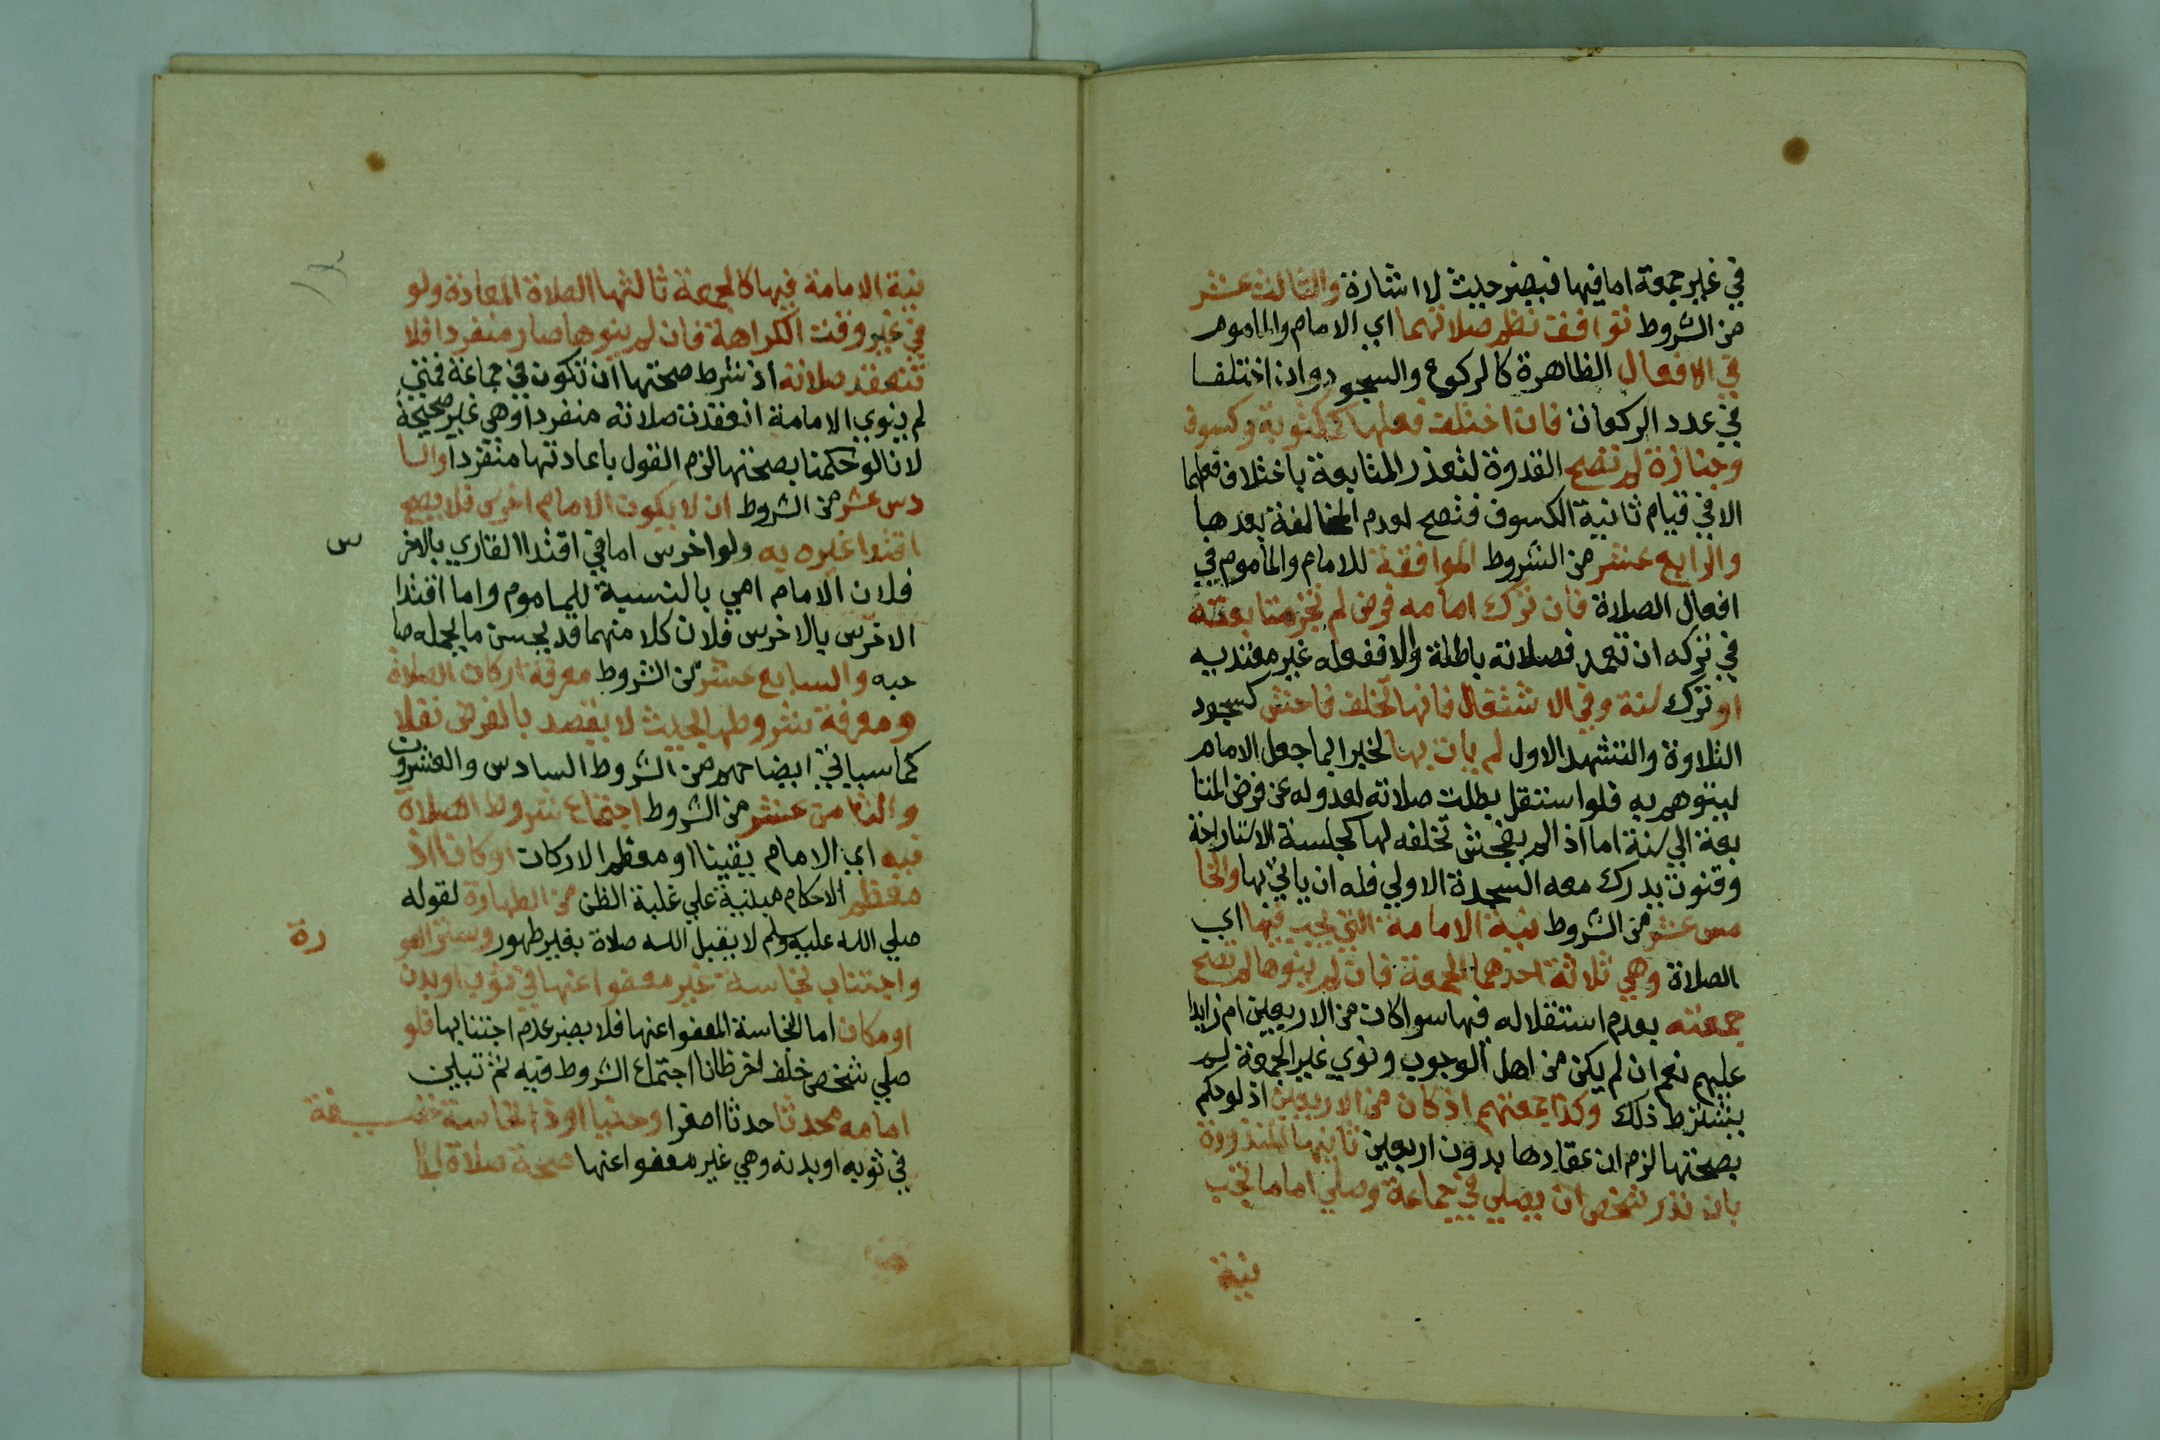 في غير جمعة اما فيها فيضر حيث لا اشارة والثالث عشر
من الشروط توافق نظم صلاتهما اي الامام والماموم
في الافعال الظاهرة كالركوع والسجود وان اختلفا
في عدد الركعات فان اختلف فعلهما كمكتوبة وكسوف
وجنازة لم تصح القدوة لتعذر المتابعة باختلاف فعلهما
الا في قيام ثانية الكسوف فتصح لعدم المخالفة بعدها
والرابع عشر من الشروط الموافقة للامام والماموم في
افعال الصلاة فان ترك امامه فرض لم تجز متابعته
في تركه ان تعمد فصلاته باطلة والا ففعله غير معتد به
او ترك سنة وفي الاشتغال فانها تخلف فاحش كسجود
التلاوة والتشهد الاول لم يات بها لخبر انما جعل الامام
ليتوهم به فلو استقل بطلت صلاته لعدوله عن فرض المتا
بعة الي سنة اما اذا لم يفحش تخلفه لها كجلسة الاستراحة
وقنوت يدرك معه السجدة الاولي فله ان ياتي بها والخا
مس عشر من الشروط نية الامامة التي يجب فيها اي
الصلاة وهي ثلاثة احدهما الجمعة فان لم ينوها لم تصح
جمعته بعدم استقلاله فيها سوا كان من الاربعين ام زايدا
عليهم نعم ان لم يكن من اهل الوجوب ونوي غير الجمعة لم
يشترط ذلك وكذا جمعتهم اذ كان من الاربعين اذ لو حكم
بصحتها لزم انعقادها بدون اربعين ثانيها المنذورة
بان نذر شخص ان يصلي في جماعة وصلي اماما تجب
نية
نية الامامة فيها كالجمعة ثالثها الصلاة المعادة ولو
في غير وقت الكراهة فان لم ينوها صار منفردا فلا
تنعقد صلاته اذ شرط صحتها ان تكون في جماعة فمتي
لم ينوي الامامة انعقدت صلاته منفردا وهي غير صحيحة
لانا لو حكمنا بصحتها لزم القول باعادتها منفردا والسا
دس عشر من الشروط ان لا يكون الامام اخرس فلا يصح
اقتدا غيره به ولو اخرس اما في اقتدا القاري بالاخر
س
فلان الامام امي بالنسبة للماموم واما اقتدا
الاخرس بالاخرس فلان كلا منهما قد يحسن ما يجمله صا
حبه والسابع عشر من الشروط معرفة اركان الصلاة
ومعرفة شروطها بحيث لا يقصد بالفرض نفلا
كما سياتي ايضاحهم من الشروط السادس والعشرون
والثامن عشر من الشروط اجتماع شروط الصلاة
فيه اي الامام يقينا او معظم الاركان او كافا اذ
معظم الاحكام مبنية علي غلبة الظن من الطهارة لقوله
صلي الله عليه وسلم لا يقبل الله صلاة بغير طهور وستر العو
رة
واجتناب نجاسة غير معفوا عنها في ثوب او بدن
او مكان اما النجاسة المعفوا عنها فلا يضر عدم اجتنابها فلو
صلي شخص خلف اخر ظانا اجتماع الشروط فيه ثم تبين
امامه محدثا حدثا اصغرا وجنبا او ذا نجاسة خفيفة
في ثوبه او بدنه وهي غير معفوا عنها صحة صلاة